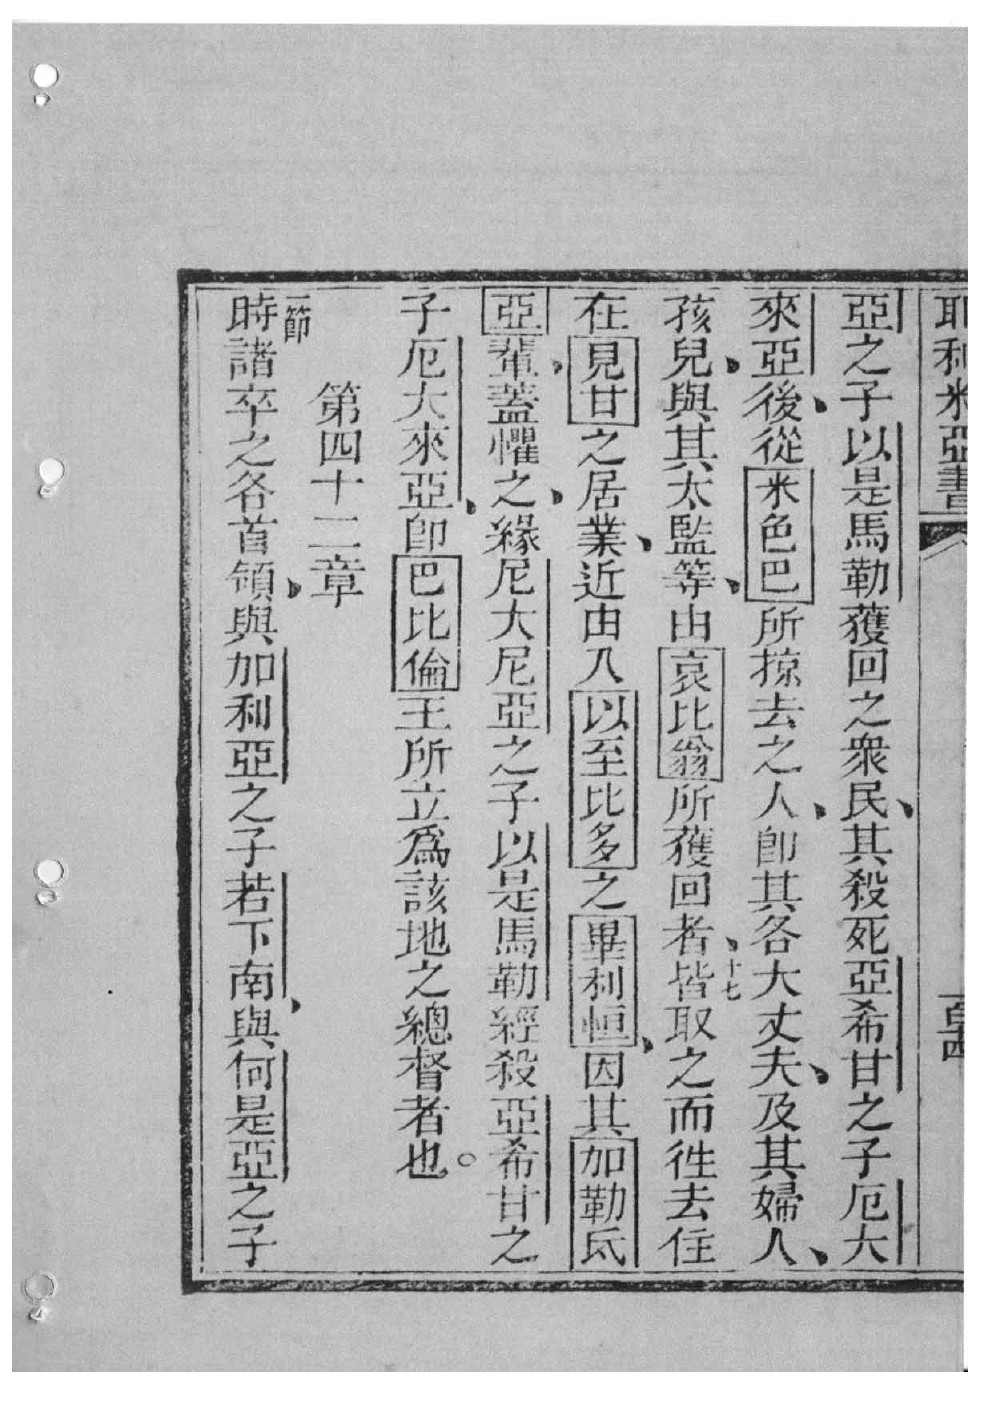 耶利米亞書 百四
亞之子以是馬勒獲回之衆民、其殺死亞希甘之子厄大
來亞後、從米色巴所掠去之人、卽其各大丈夫、及其婦人、
孩兒、與其太監等、由哀比翁所獲回者、十七皆取之而徃去住
在見甘之居業、近由入以至比多之畢利恒、因其加勒氐
亞輩、蓋懼之、緣尼大尼亞之子以是馬勒經殺亞希甘之
子厄大來亞、卽巴比倫王所立爲該地之總督者也。
第四十二章
一節時諸卒之各首領、與加利亞之子若下南、與何是亞之子